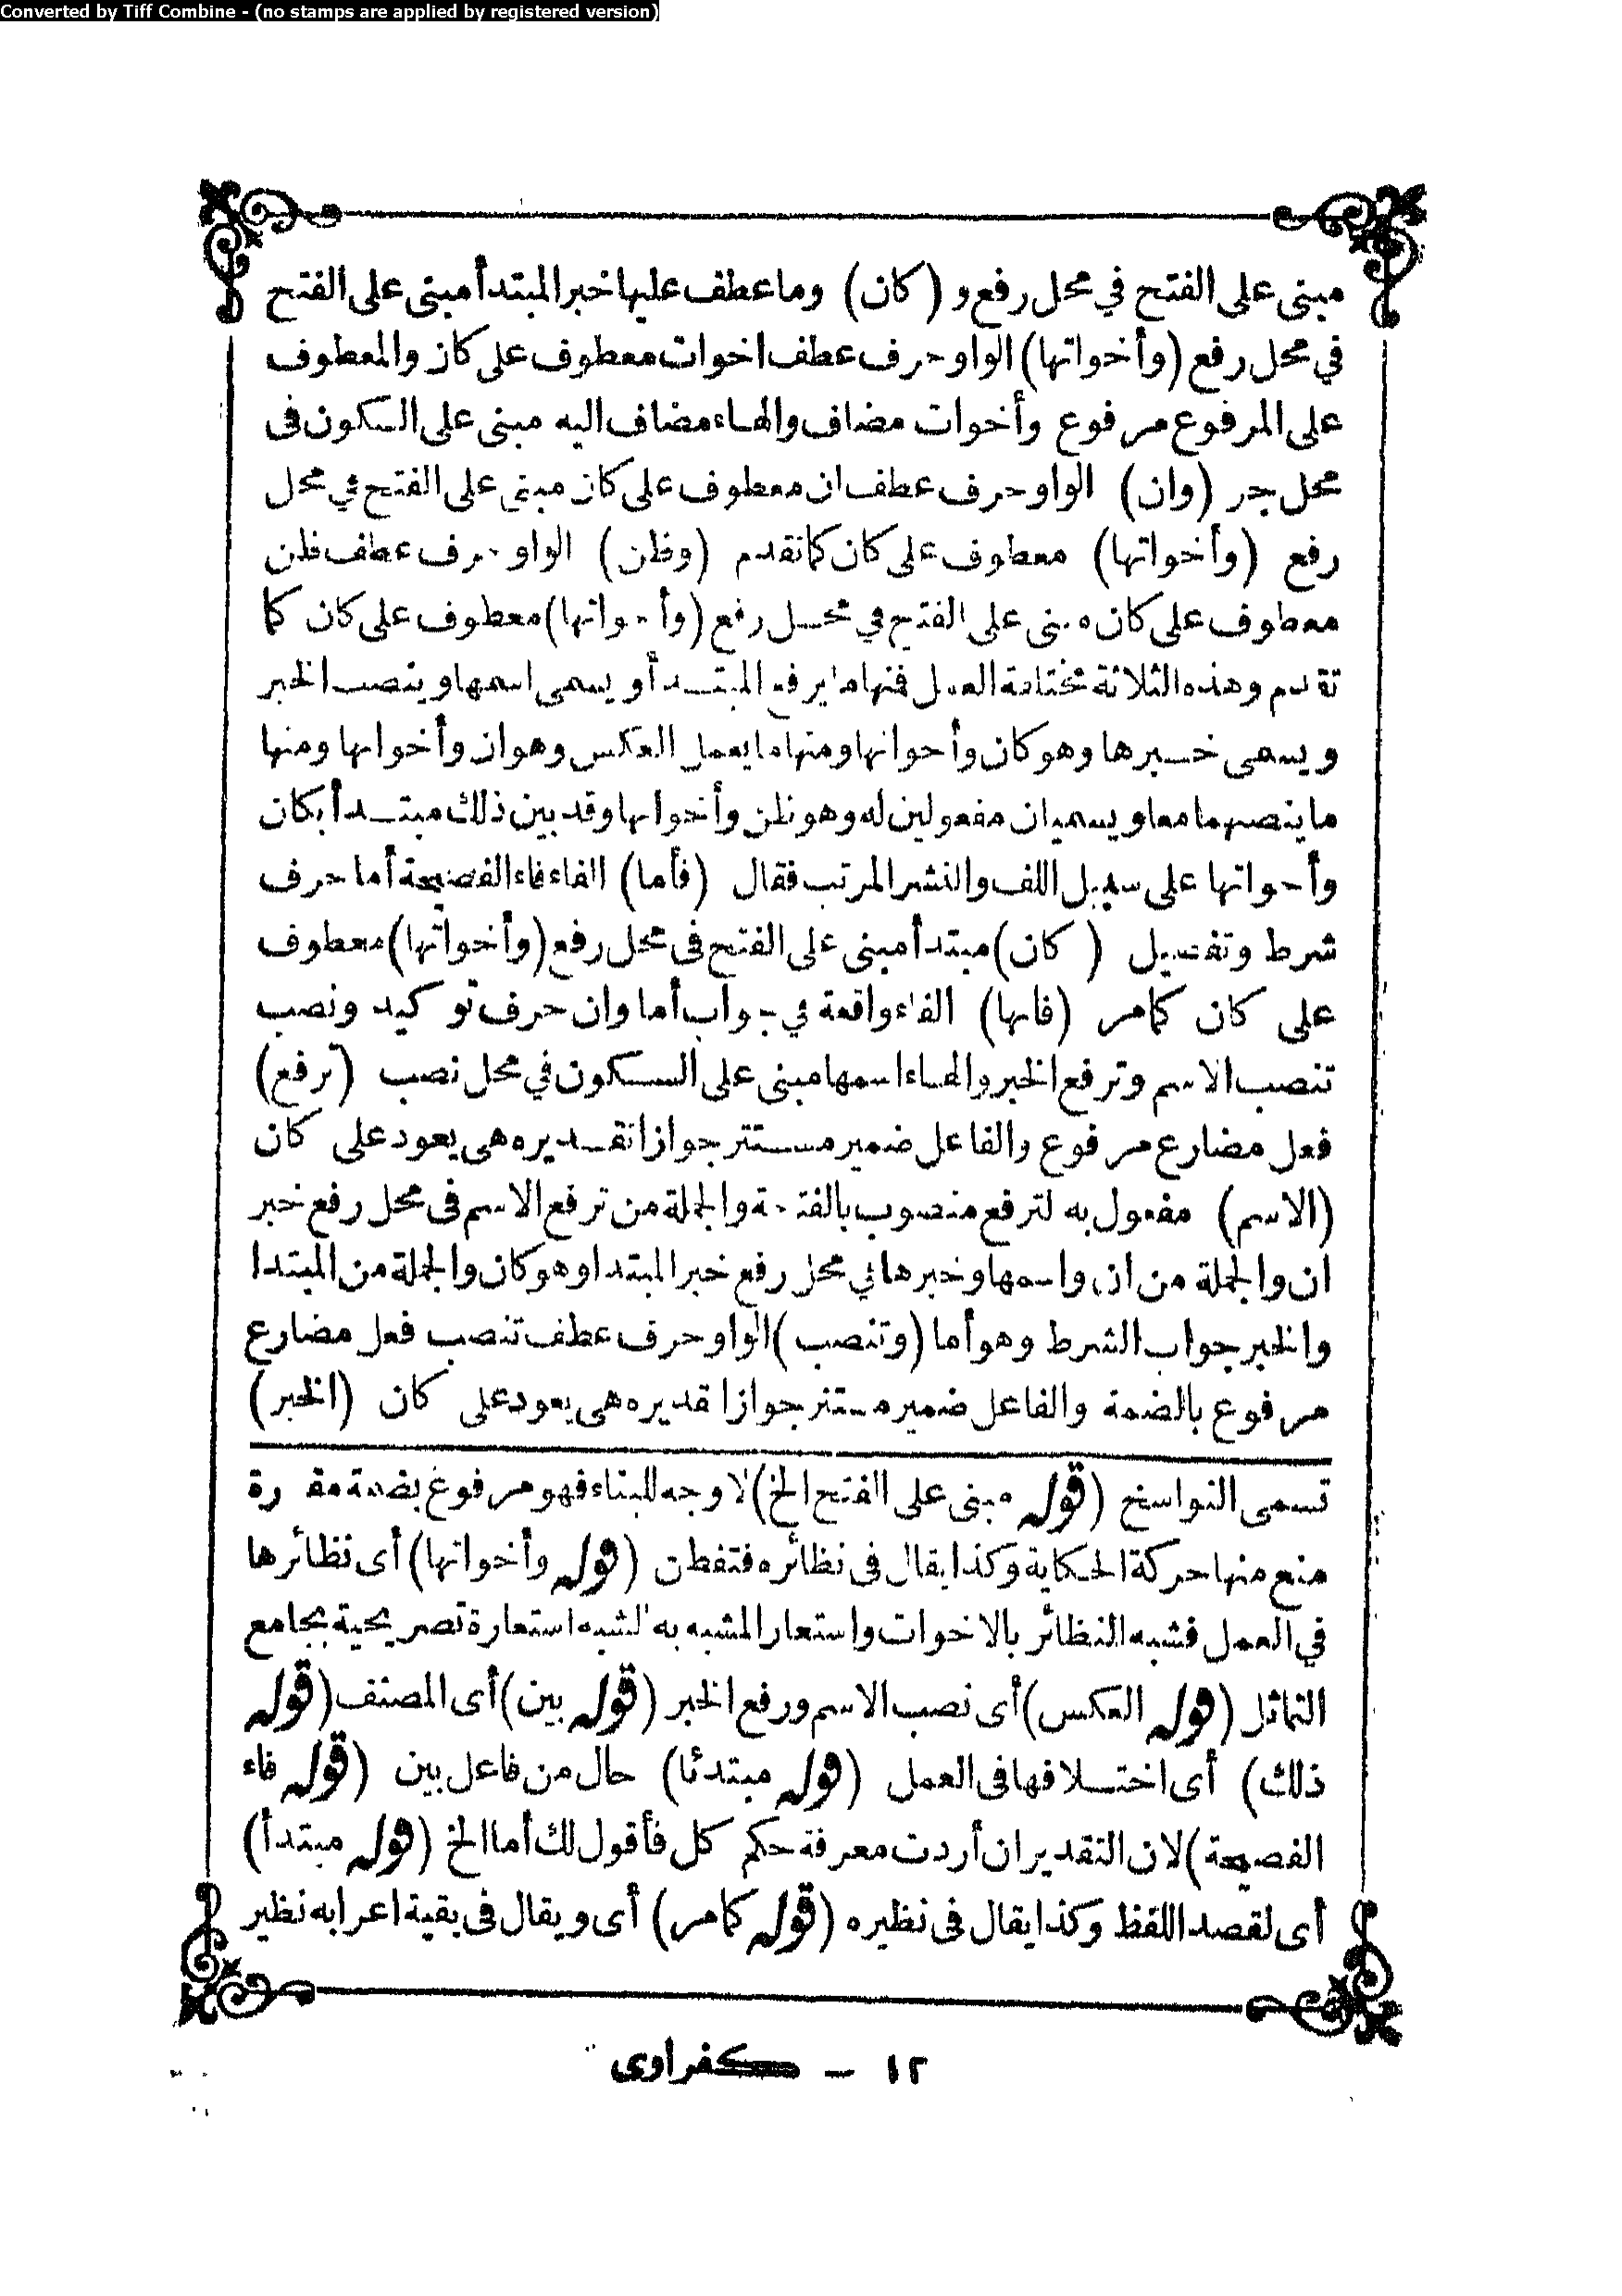 Converted by Tiff Combine - (no stamps are applied by registered version)
مبنى على الفتح في محل رفع و (كان) وما عطف عليها خبر المبتدأ مبنى على الفتح
في محل رفع (وأخواتها) الواو حرف عطف اخوات معطوف على كان والمعطوف
على المرفوع مرفوع وأخوات مضاف والهاء مضاف اليه مبنى على السكون فى
محل جر (وان) الواو حرف عطف ان معطوف على كان مبنى على الفتح في محل
رفع (وأخواتها) معطوف على كان كما تقدم (وظن) الواو حرف عطف ظن
معطوف على كان مبنى على الفتح في محل رفع (وأخواتها) معطوف على كان كما
تقدم وهذه الثلاثة مختلفة العمل فمنها ما يرفع المبتدأ ويسمى اسمها وينصب الخبر
ويسمى خبرها وهو كان وأخواتها ومنها ما يعمل العكس وهو ان وأخواتها ومنها
ما ينصبهما معا ويسميان مفعولين له وهو ظن وأخواتها وقد بين ذلك مبتدأ بكان
وأخواتها على سبيل اللف والنشر المرتب فقال (فأما) الفاء فاء الفصيحة أما حرف
شرط وتفصيل (كان) مبتدأ مبنى على الفتح فى محل رفع (وأخواتها) معطوف
على كان كما مر (فانها) الفاء واقعة في جواب أما وان حرف توكيد ونصب
تنصب الاسم وترفع الخبر والهاء اسمها مبنى على السكون في محل نصب (ترفع)
فعل مضارع مرفوع والفاعل ضمير مستتر جوازا تقديره هى يعود على كان
(الاسم) مفعول به لترفع منصوب بالفتحة والجملة من ترفع الاسم فى محل رفع خبر
ان والجملة من ان واسمها وخبرها في محل رفع خبر المبتدا وهو كان والجملة من المبتدا
والخبر جواب الشرط وهو أما (وتنصب) الواو حرف عطف تنصب فعل مضارع
مرفوع بالضمة والفاعل ضمير مستتر جوازا تقديره هى يعود على كان (الخبر)
تسمى النواسخ (قوله مبنى على الفتح الخ) لا وجه للبناء فهو مرفوع بضمة مقدرة
منع منها حركة الحكاية وكذا يقال فى نظائره فتفطن (قوله وأخواتها) أى نظائرها
في العمل فشبه النظائر بالاخوات واستعار المشبه به للشبه استعارة تصريحية بجامع
التماثل (قوله العكس) أى نصب الاسم ورفع الخبر (قوله بين) أى المصنف (قوله
ذلك) أى اختلافها فى العمل (قوله مبتدئا) حال من فاعل بين (قوله فاء
الفصيحة) لان التقدير ان أردت معرفة حكم كل فأقول لك أما الخ (قوله مبتدأ)
أى لقصد اللفظ وكذا يقال فى نظيره (قوله كما مر) أى ويقال فى بقية اعرابه نظير
١٢ - كفراوى